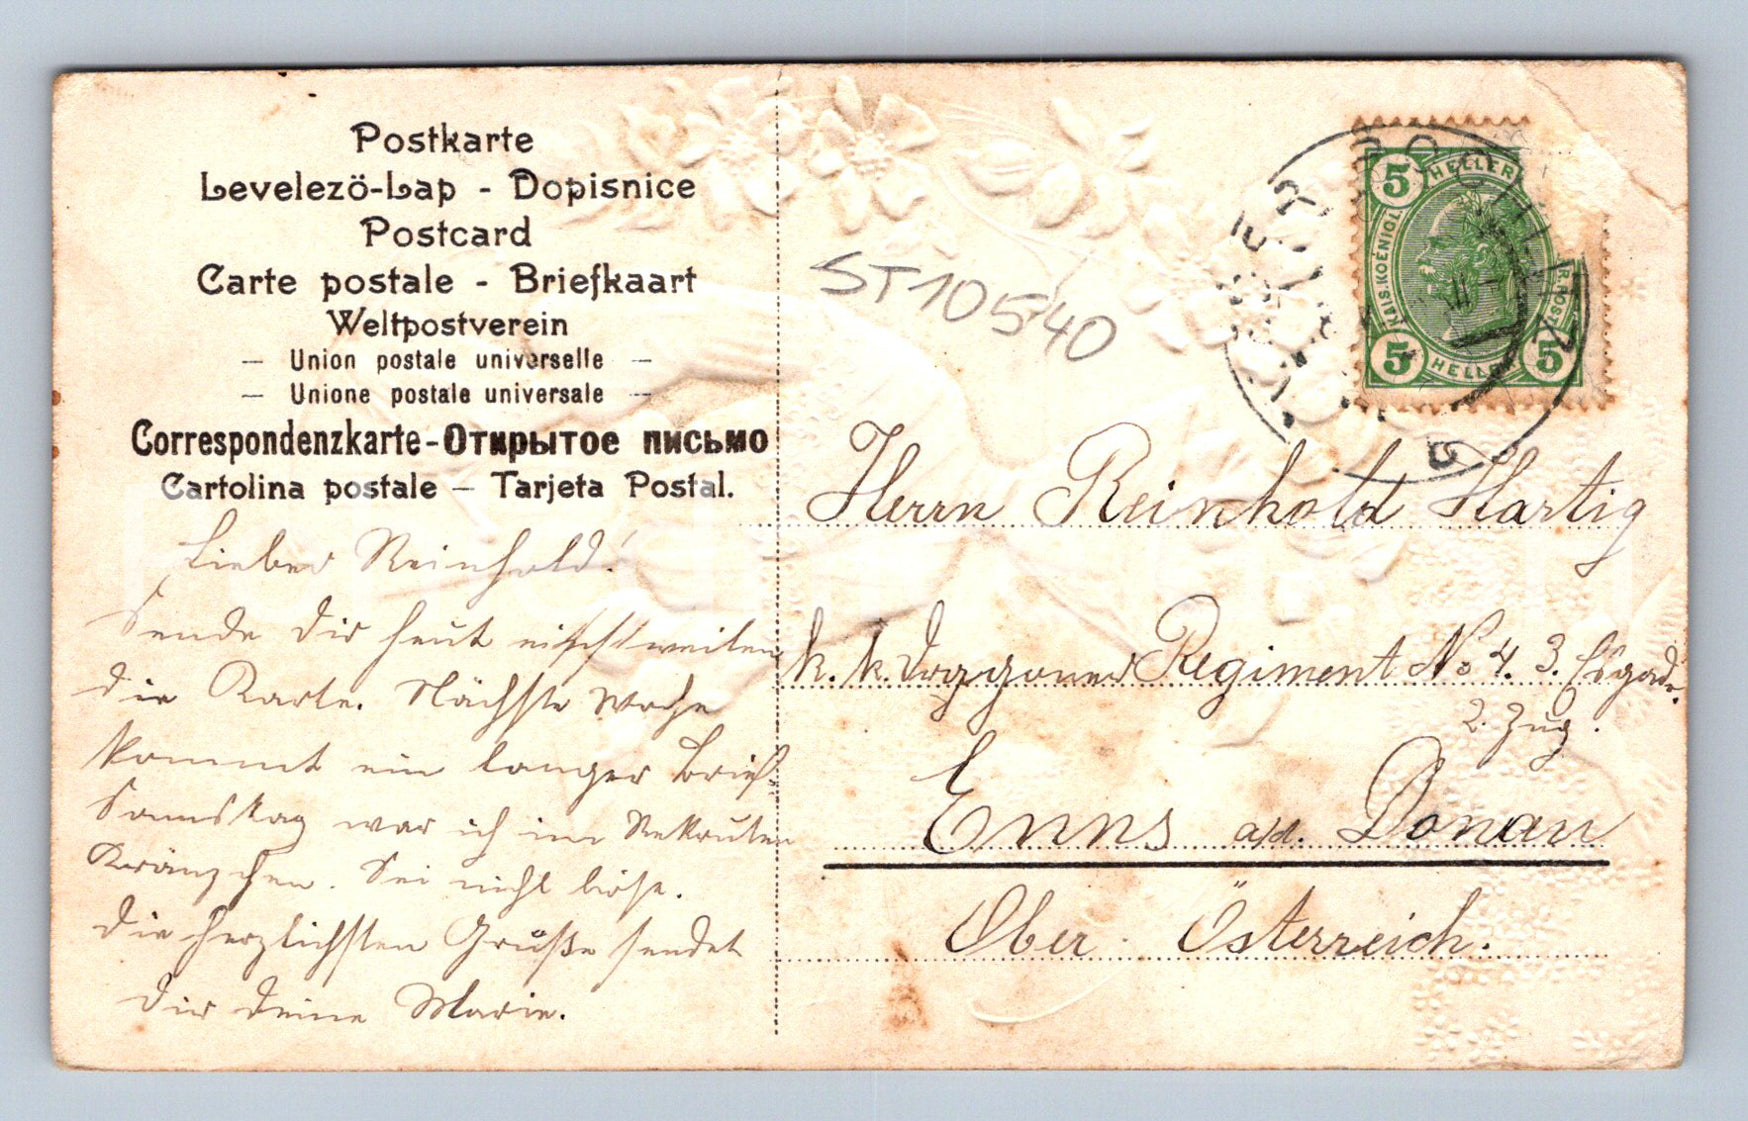 Postkarte
Levelezö-Lap - Dopisnice
Postcard
Carte postale - Briefkaart
Weltpostverein
— Union postale universelle —
— Unione postale universale —
Correspondenzkarte-Открытое письмо
Cartolina postale — Tarjeta Postal.
Lieber Reinhold!
Sende Dir heut einstweilen
die Karte. Nächste Woche
kommt ein langer Brief.
Samstag war ich im Rekruten
Kränzchen. Sei nicht böse.
Die herzlichsten Grüße sendet
Dir Deine Marie.
ST10540
5 HELLER
KAIS. KOENIGL.
5 HELLER 5
Herrn Reinhold Hartig
k. k. Dragoner Regiment No 4. 3. Esgadr.
2. Zug.
Enns a/d. Donau
Ober. Österreich.